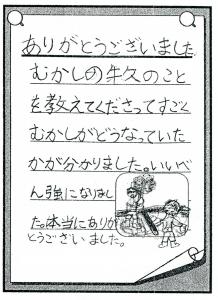 ありがとうございました
むかしの牛久のこと
を教えてくださってすごく
むかしがどうなっていた
かが分かりました。いいべ
ん強になりまし
た。本当にありが
とうございました。